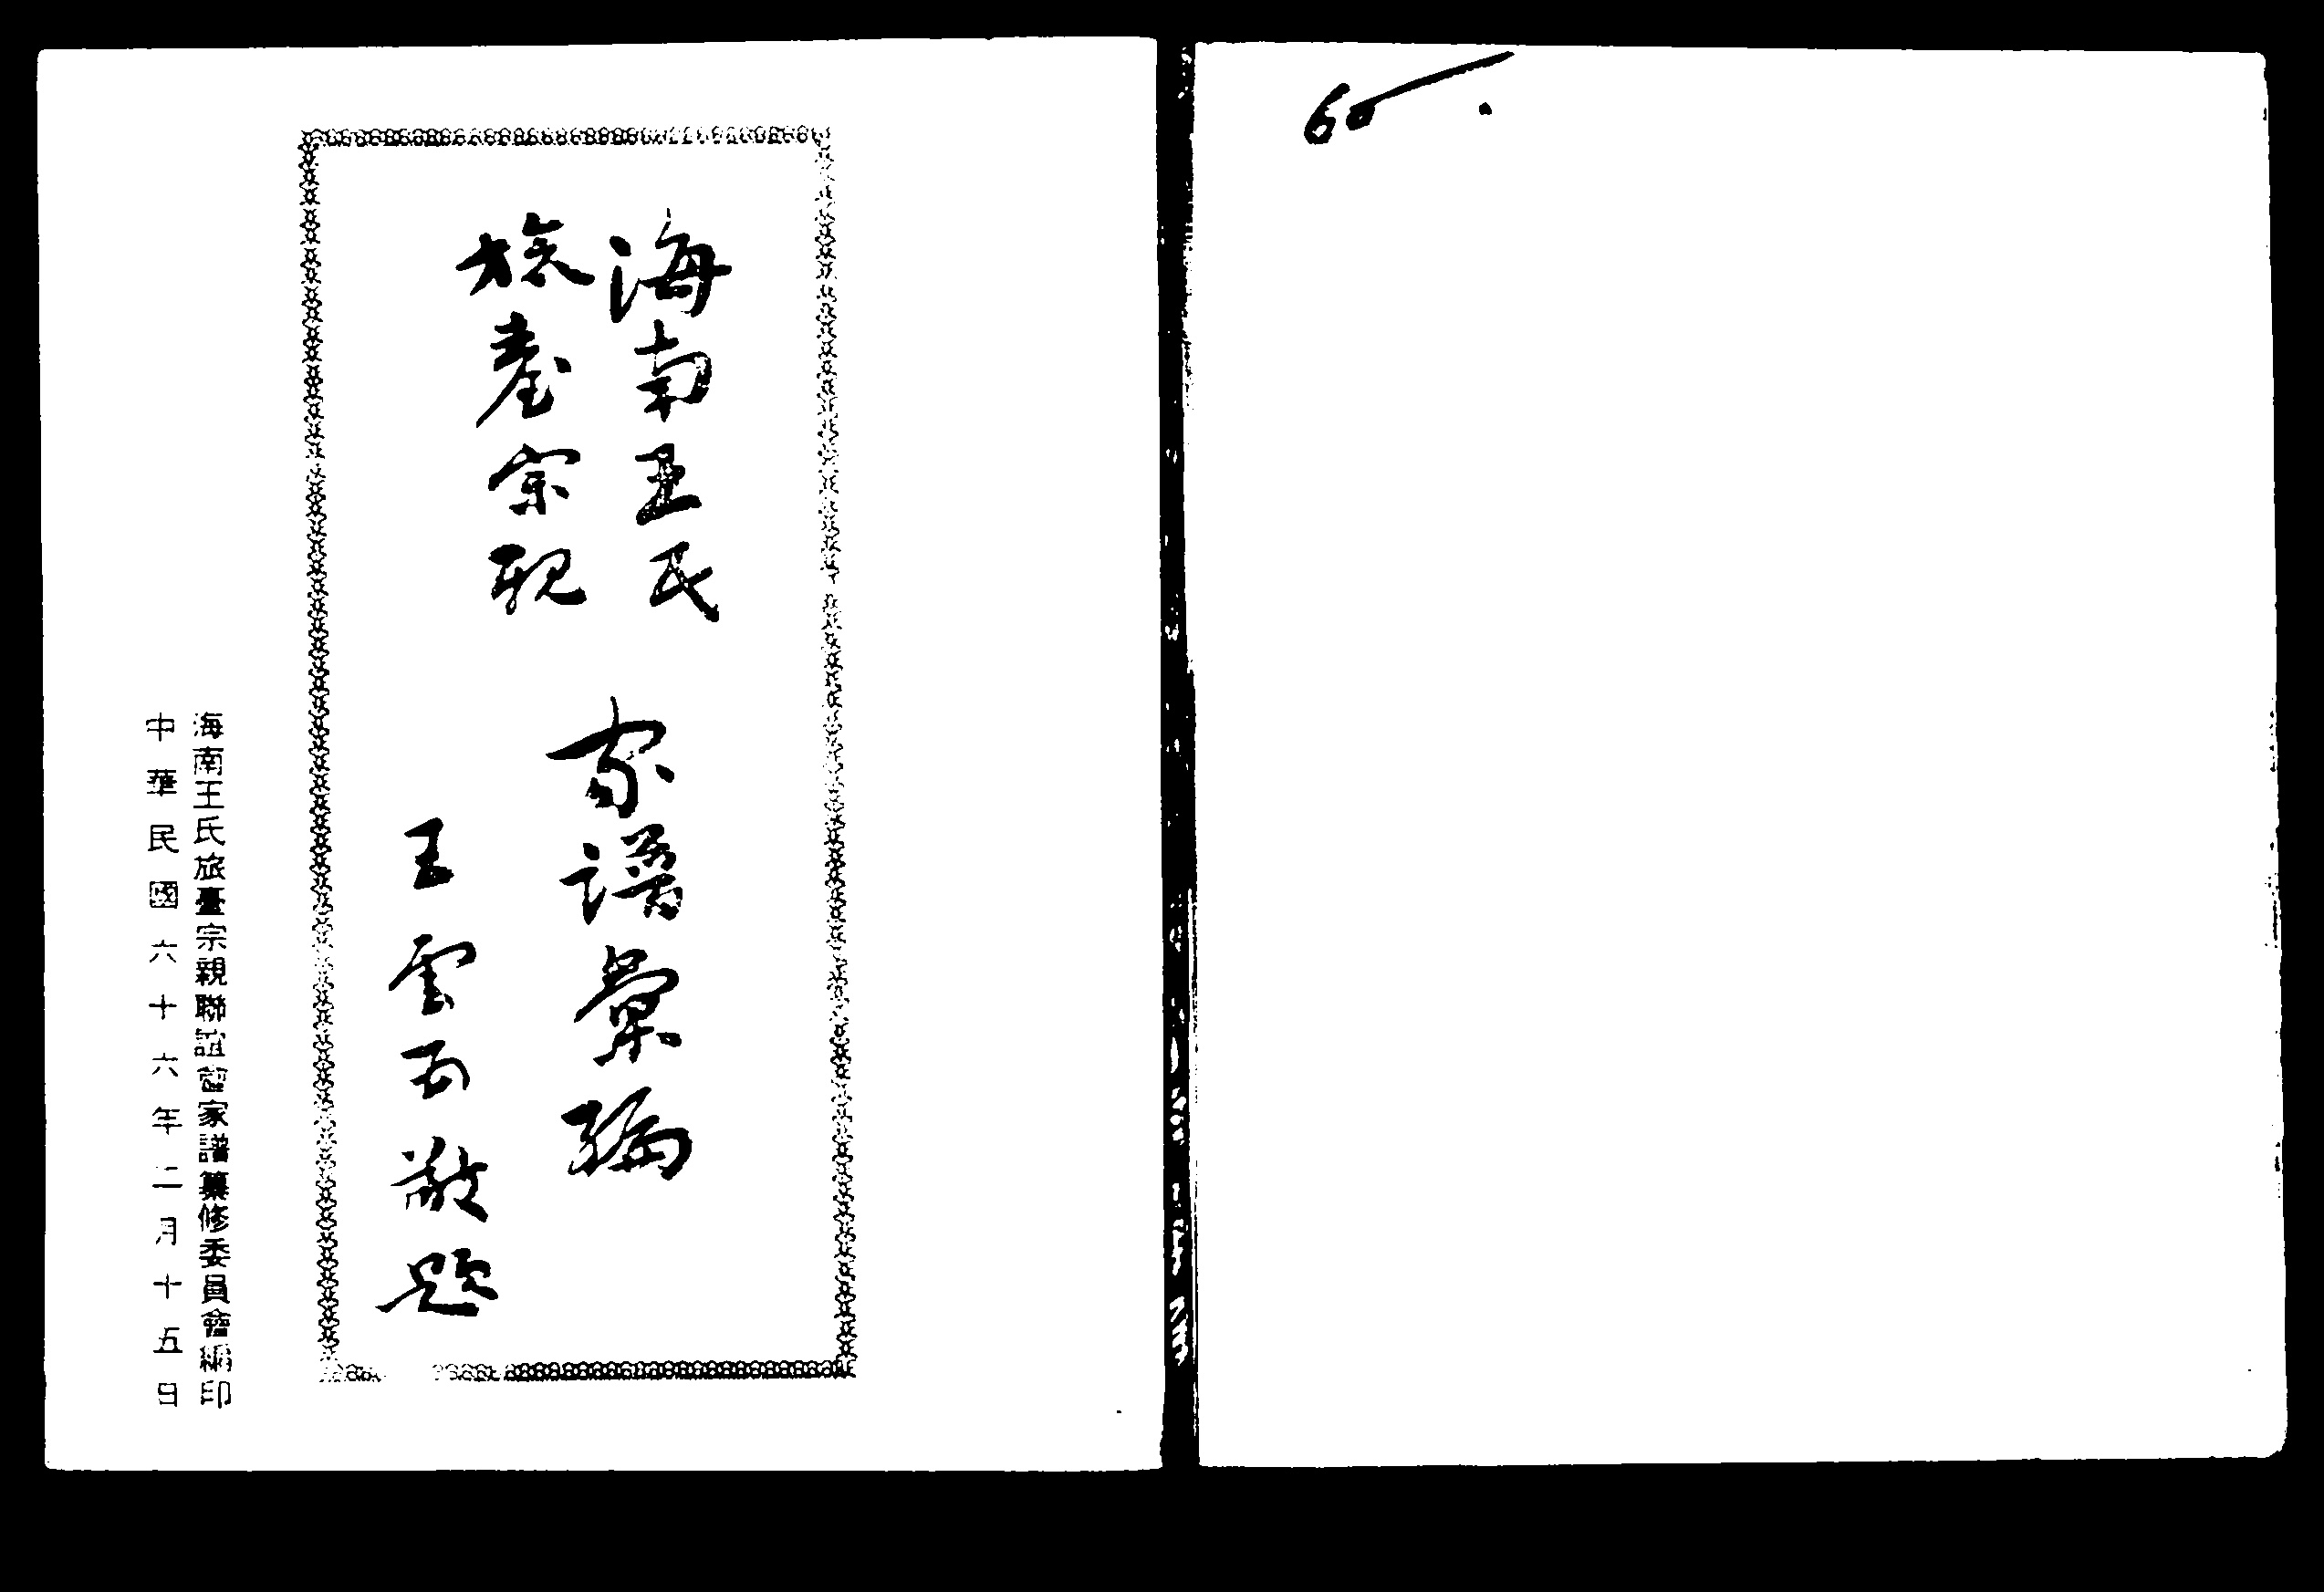 60
海南王氏
旅臺宗親
家譜彙編
王雲五敬題
海南王氏旅臺宗親聯誼會家譜纂修委員會編印
中華民國六十六年二月十五日